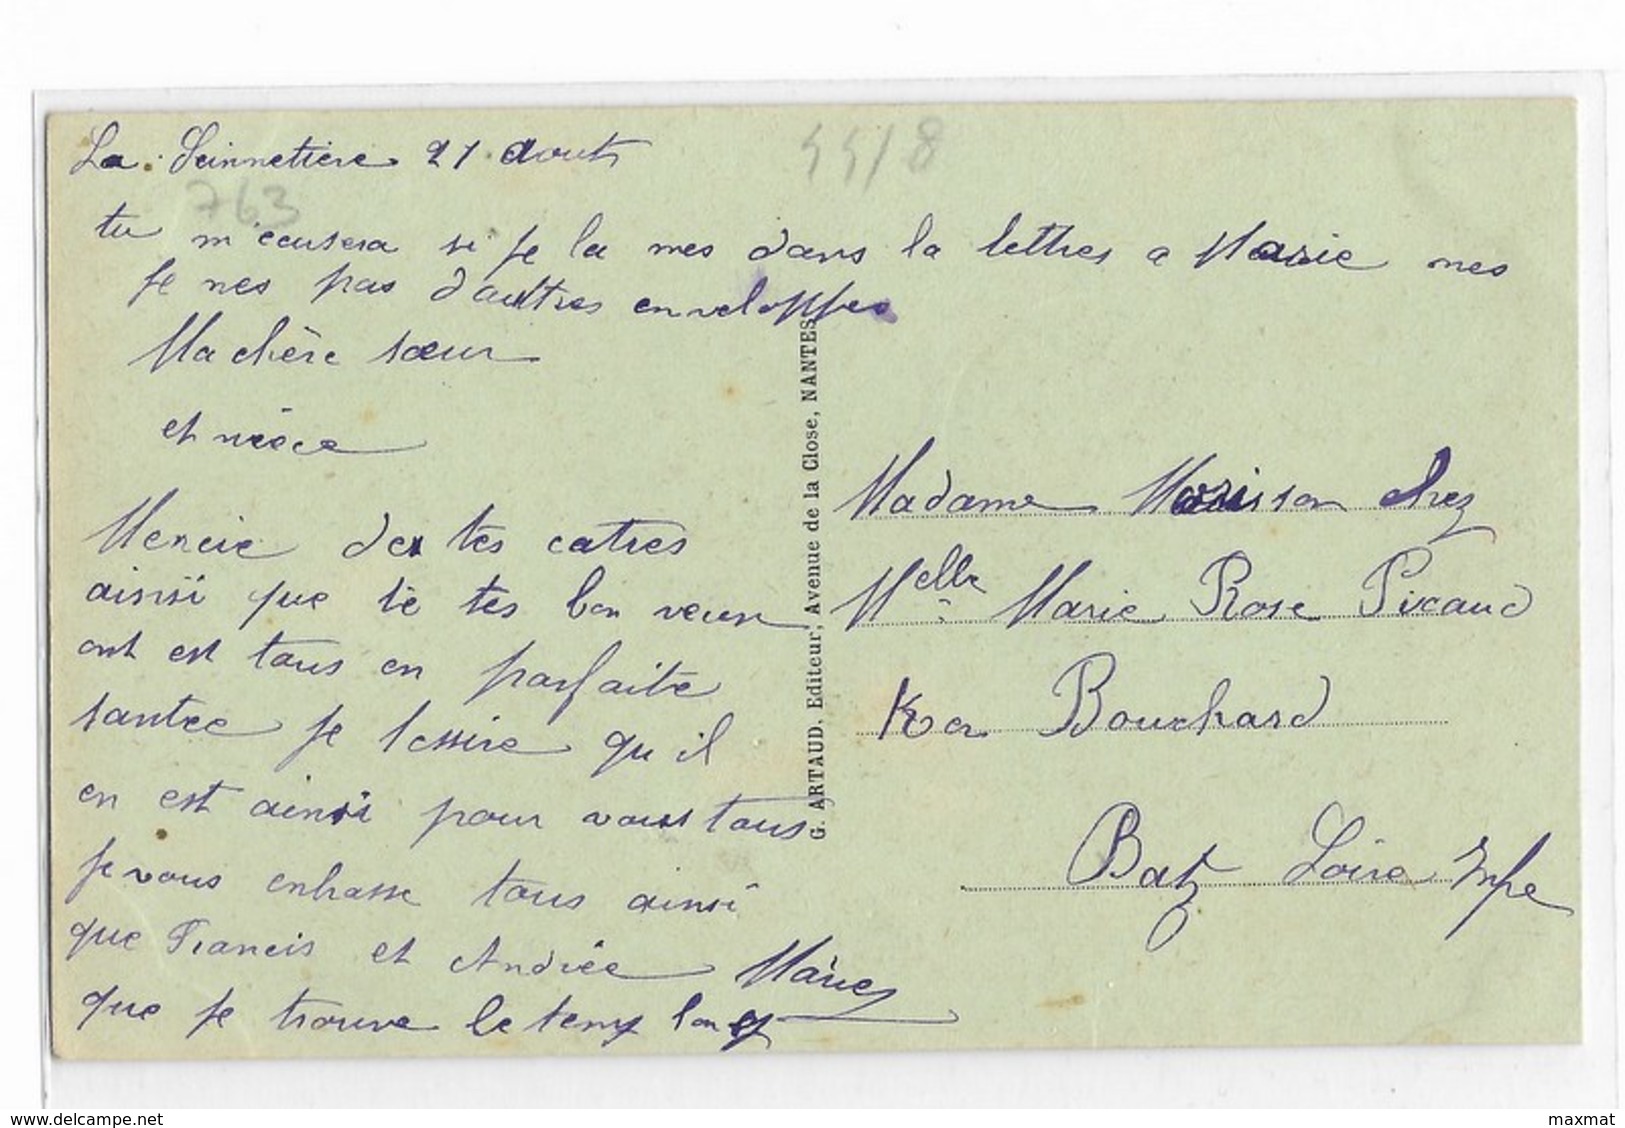 La Seinnetiere 21 Aout
44/8
763
tu m'ecusera si je la mes dans la lettres a Marie mes
je nes pas d'autres enveloppes
Ma chère sœur
et nièce
Mercie de tes catres
ainsi que de tes bon veux
ont est tous en parfaite
santee je qu il
en est ainsi pour vous tous
je vous enbasse tous ainsi
que Francis et Andrée Marie
que je trouve le temp long
G. ARTAUD. Editeur, Avenue de la Close, NANTES
Madame Morisson chez
Melle Marie Rose Picaud
Ker Bouchard
Batz Loire Infe
delcampe.net
maxmat